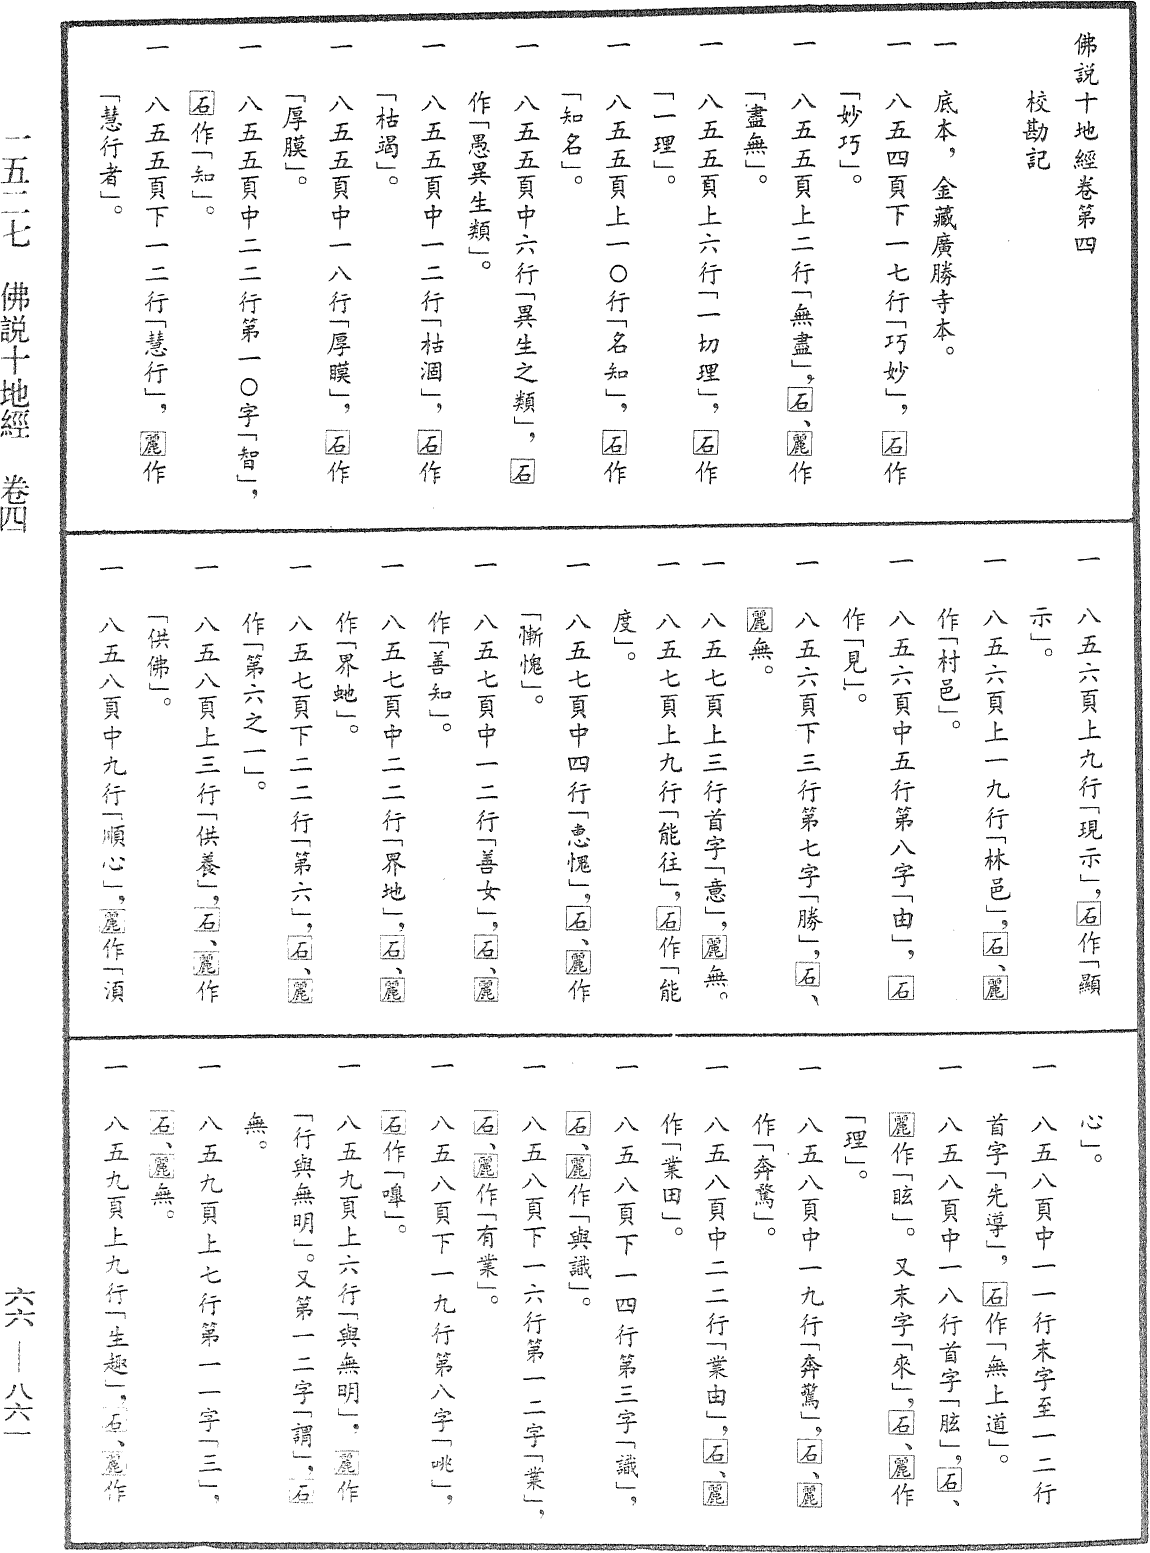 佛説十地經卷第四
校勘記
一　底本，金藏廣勝寺本。
一　八五四頁下一七行「巧妙」，石作
「妙巧」。
一　八五五頁上二行「無盡」，石、麗作
「盡無」。
一　八五五頁上六行「一切理」，石作
「一理」。
一　八五五頁上一〇行「名知」，石作
「知名」。
一　八五五頁中六行「異生之類」，石
作「愚異生類」。
一　八五五頁中一二行「枯涸」，石作
「枯竭」。
一　八五五頁中一八行「厚瞙」，石作
「厚膜」。
一　八五五頁中二二行第一〇字「智」，
石作「知」。
一　八五五頁下一二行「慧行」，麗作
「慧行者」。
一　八五六頁上九行「現示」，石作「顯
示」。
一　八五六頁上一九行「林邑」，石、麗
作「村邑」。
一　八五六頁中五行第八字「由」，石
作「見」。
一　八五六頁下三行第七字「勝」，石、
麗無。
一　八五七頁上三行首字「意」，麗無。
一　八五七頁上九行「能往」，石作「能
度」。
一　八五七頁中四行「恵愧」，石、麗作
「慚愧」。
一　八五七頁中一二行「善女」，石、麗
作「善知」。
一　八五七頁中二二行「界地」，石、麗
作「界虵」。
一　八五七頁下二二行「第六」，石、麗
作「第六之一」。
一　八五八頁上三行「供養」，石、麗作
「供佛」。
一　八五八頁中九行「順心」，麗作「湏
心」。
一　八五八頁中一一行末字至一二行
首字「先導」，石作「無上道」。
一　八五八頁中一八行首字「眩」，石、
麗作「眩」。又末字「來」，石、麗作
「理」。
一　八五八頁中一九行「奔驚」，石、麗
作「奔騖」。
一　八五八頁中二二行「業由」，石、麗
作「業田」。
一　八五八頁下一四行第三字「識」，
石、麗作「與識」。
一　八五八頁下一六行第一二字「業」，
石、麗作「有業」。
一　八五八頁下一九行第八字「咷」，
石作「嘷」。
一　八五九頁上六行「與無明」，麗作
「行與無明」。又第一二字「謂」，石
無。
一　八五九頁上七行第一一字「三」，
石、麗無。
一　八五九頁上九行「生趣」，石、麗作
一五二七　佛説十地經　卷四
六六—八六一